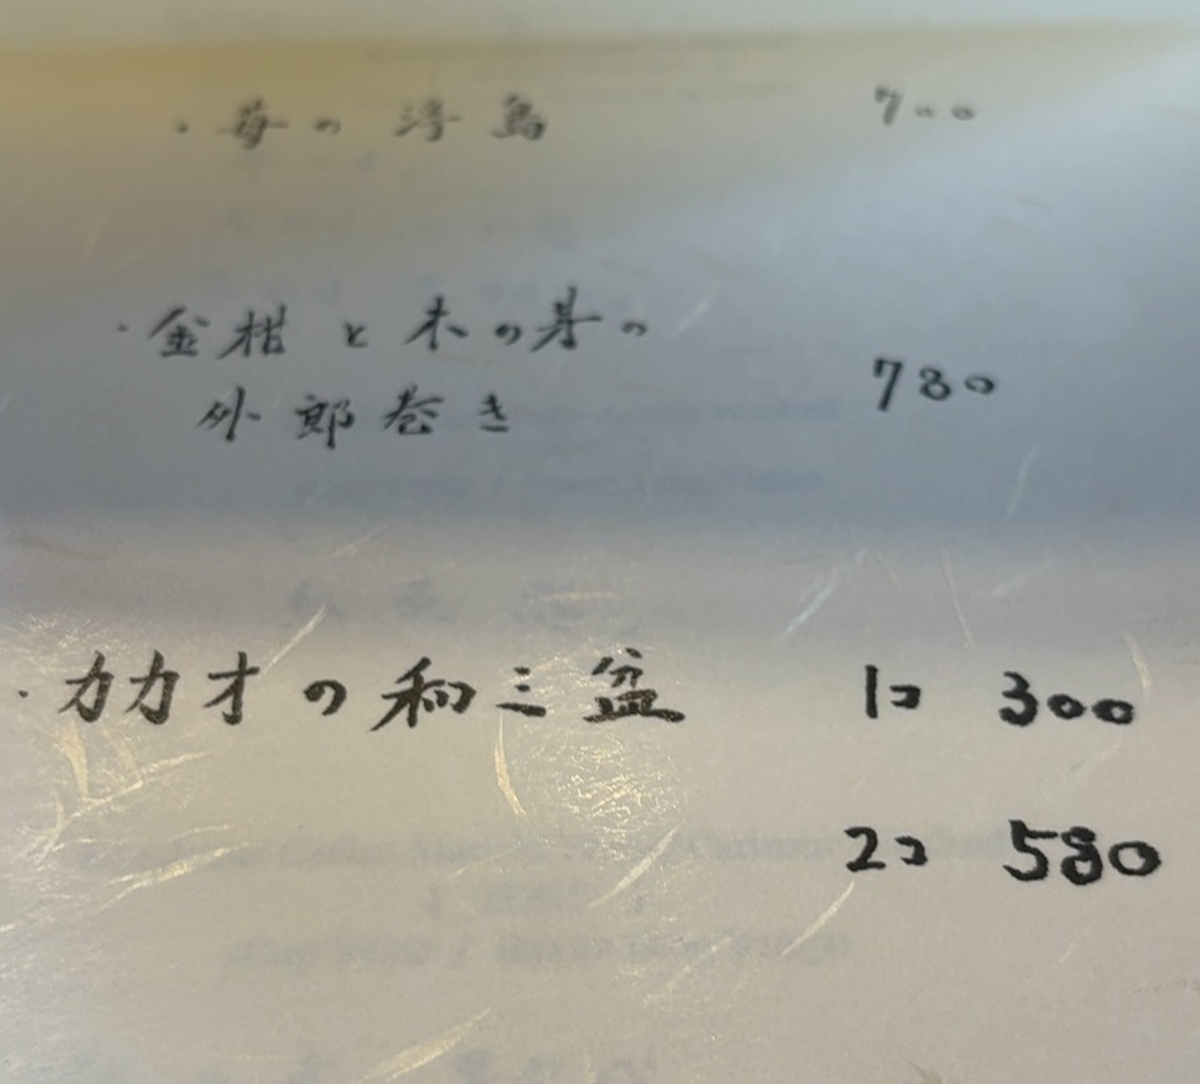 ・苺の浮島 700
・金柑と木の芽の
外郎巻き 780
・カカオの和三盆 1コ 300
2コ 580